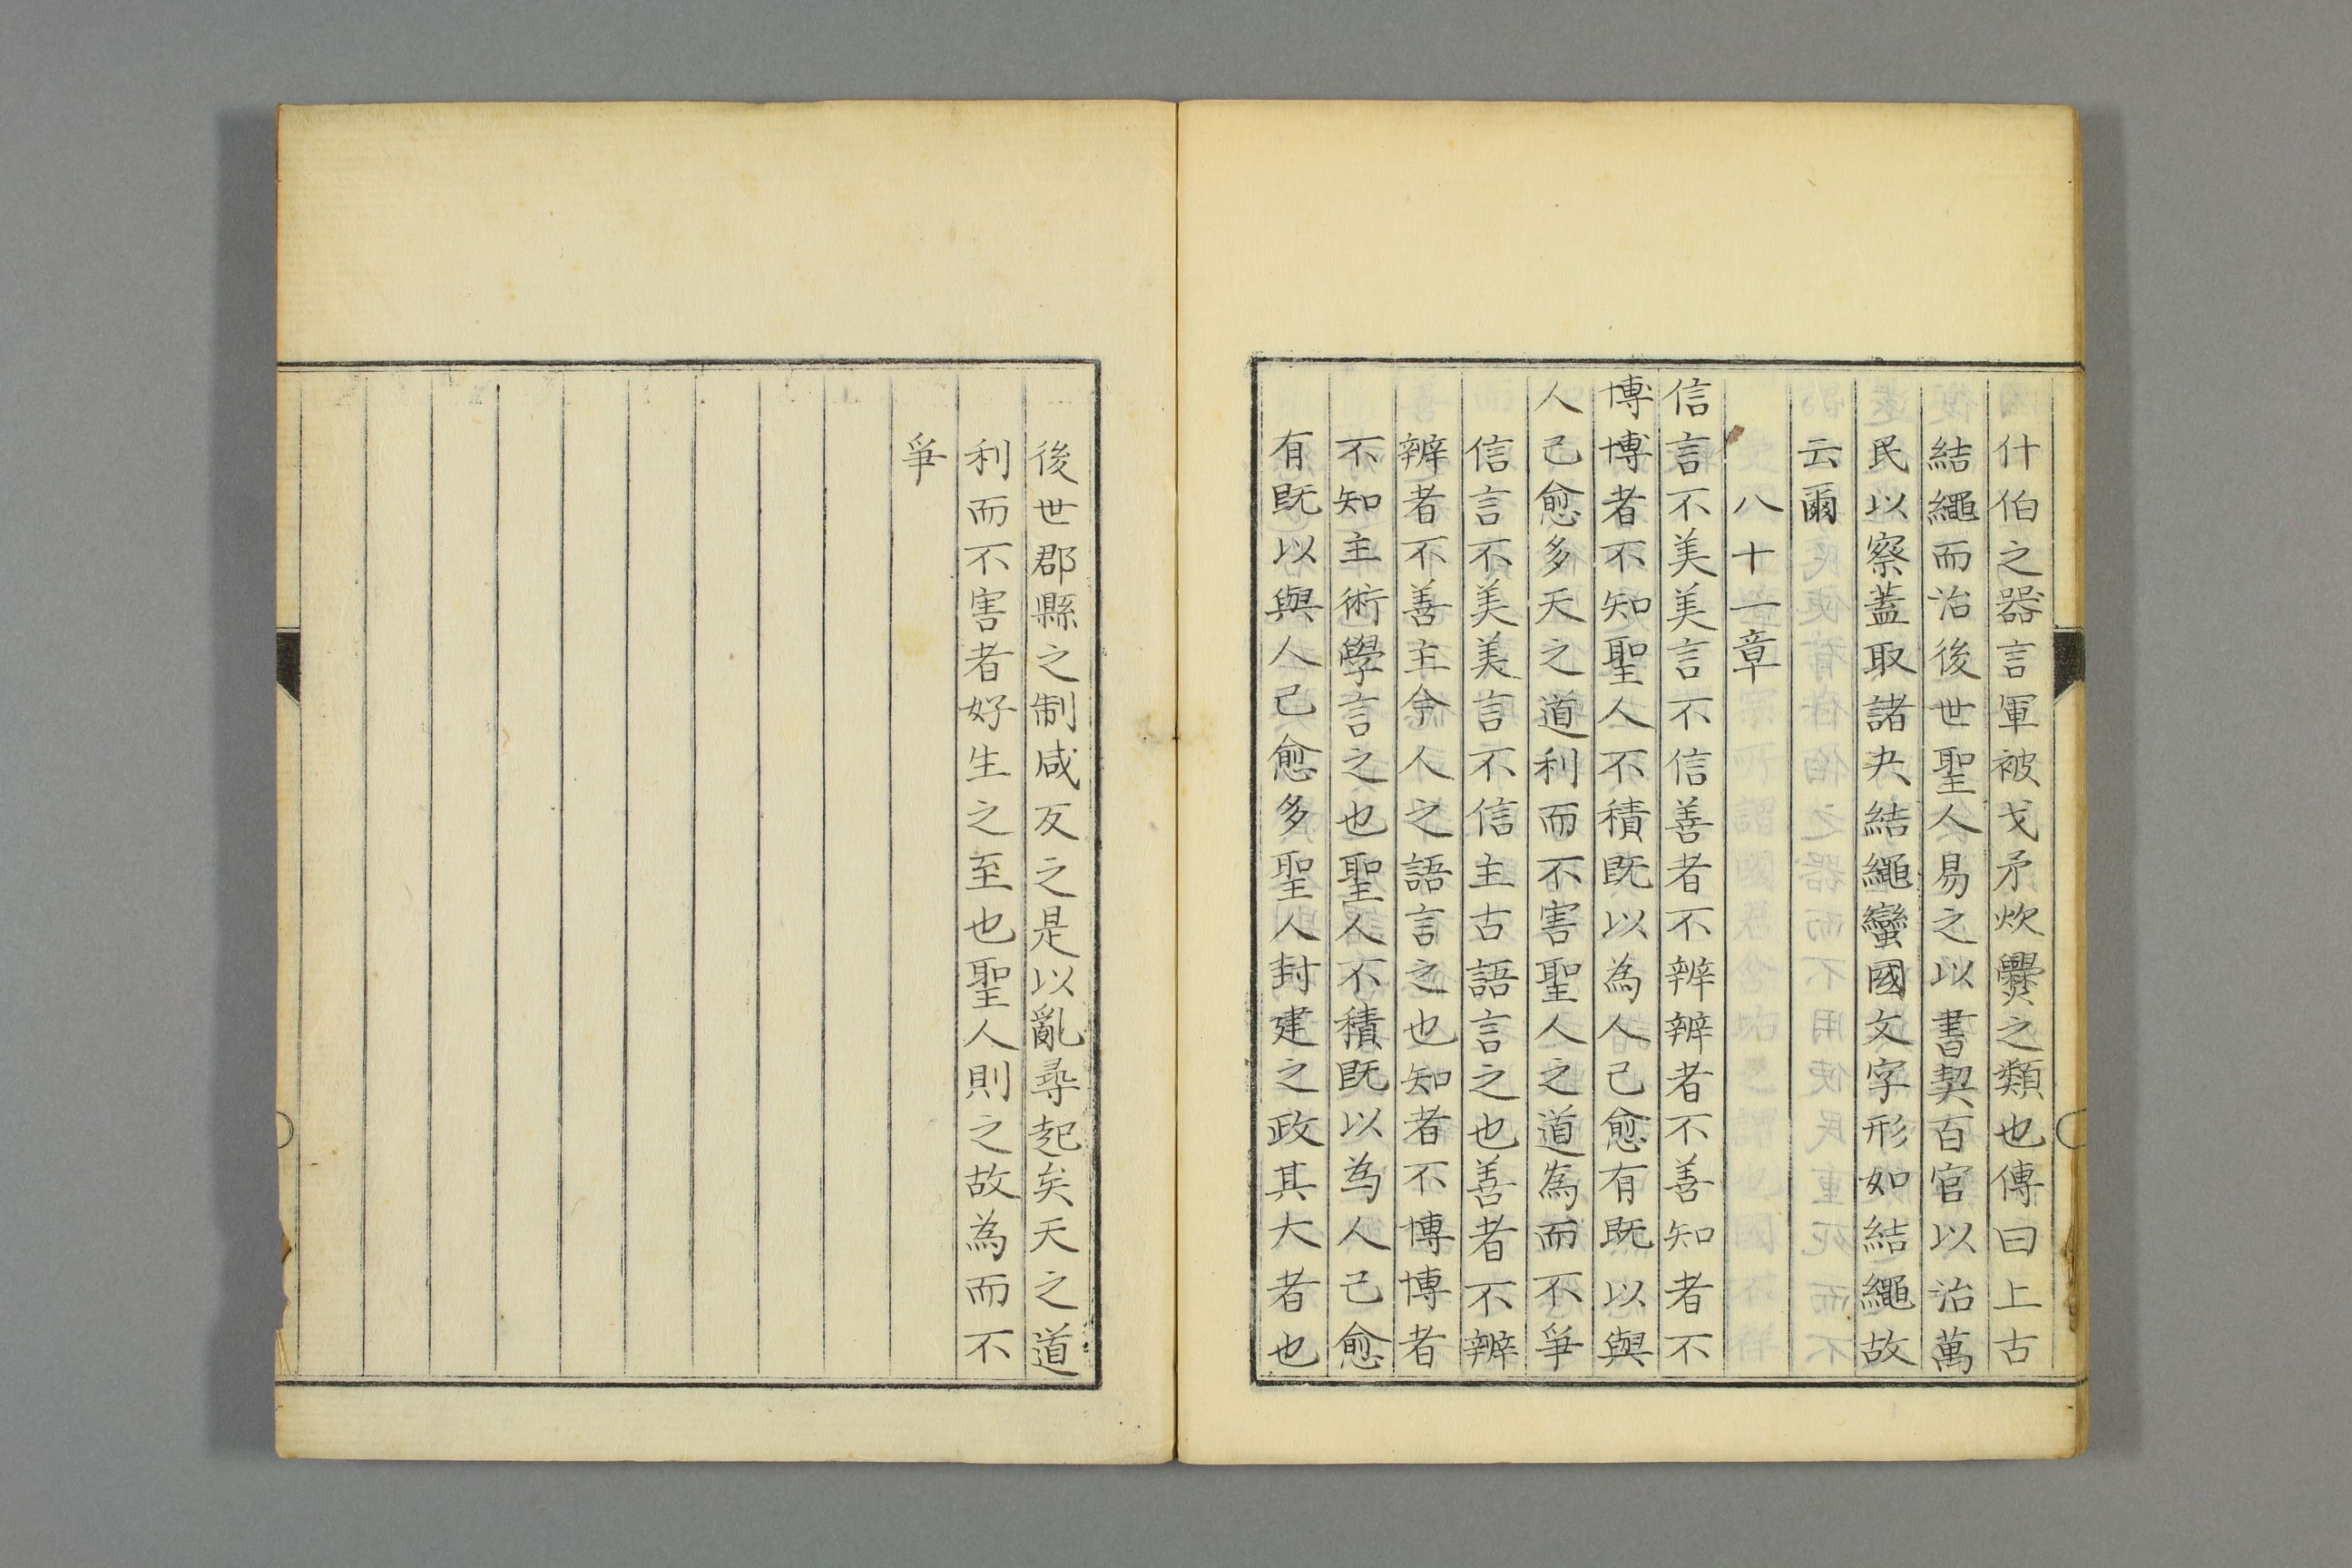 什伯之器言軍被戈矛炊爨之類也傳曰上古
結繩而治後世聖人易之以書契百官以治萬
民以察蓋取諸夬結繩蠻國文字形如結繩故
云爾
八十一章
信言不美美言不信善者不辨辨者不善知者不
博博者不知聖人不積既以為人己愈有既以與
人己愈多天之道利而不害聖人之道為而不爭
信言不美美言不信主古語言之也善者不辨
辨者不善主令人之語言之也知者不博博者
不知主術學言之也聖人不積既以為人己愈
有既以與人己愈多聖人封建之政其大者也
後世郡縣之制咸反之是以亂尋起矣天之道
利而不害者好生之至也聖人則之故為而不
爭